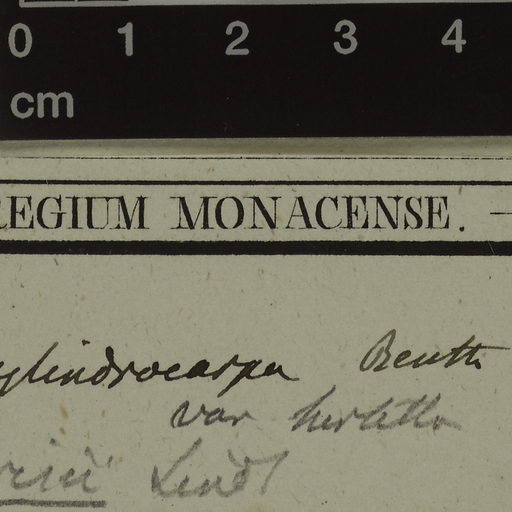 0 1 2 3 4
cm
REGIUM MONACENSE. —
ylindrocarpa Benth
var
risii Lindl